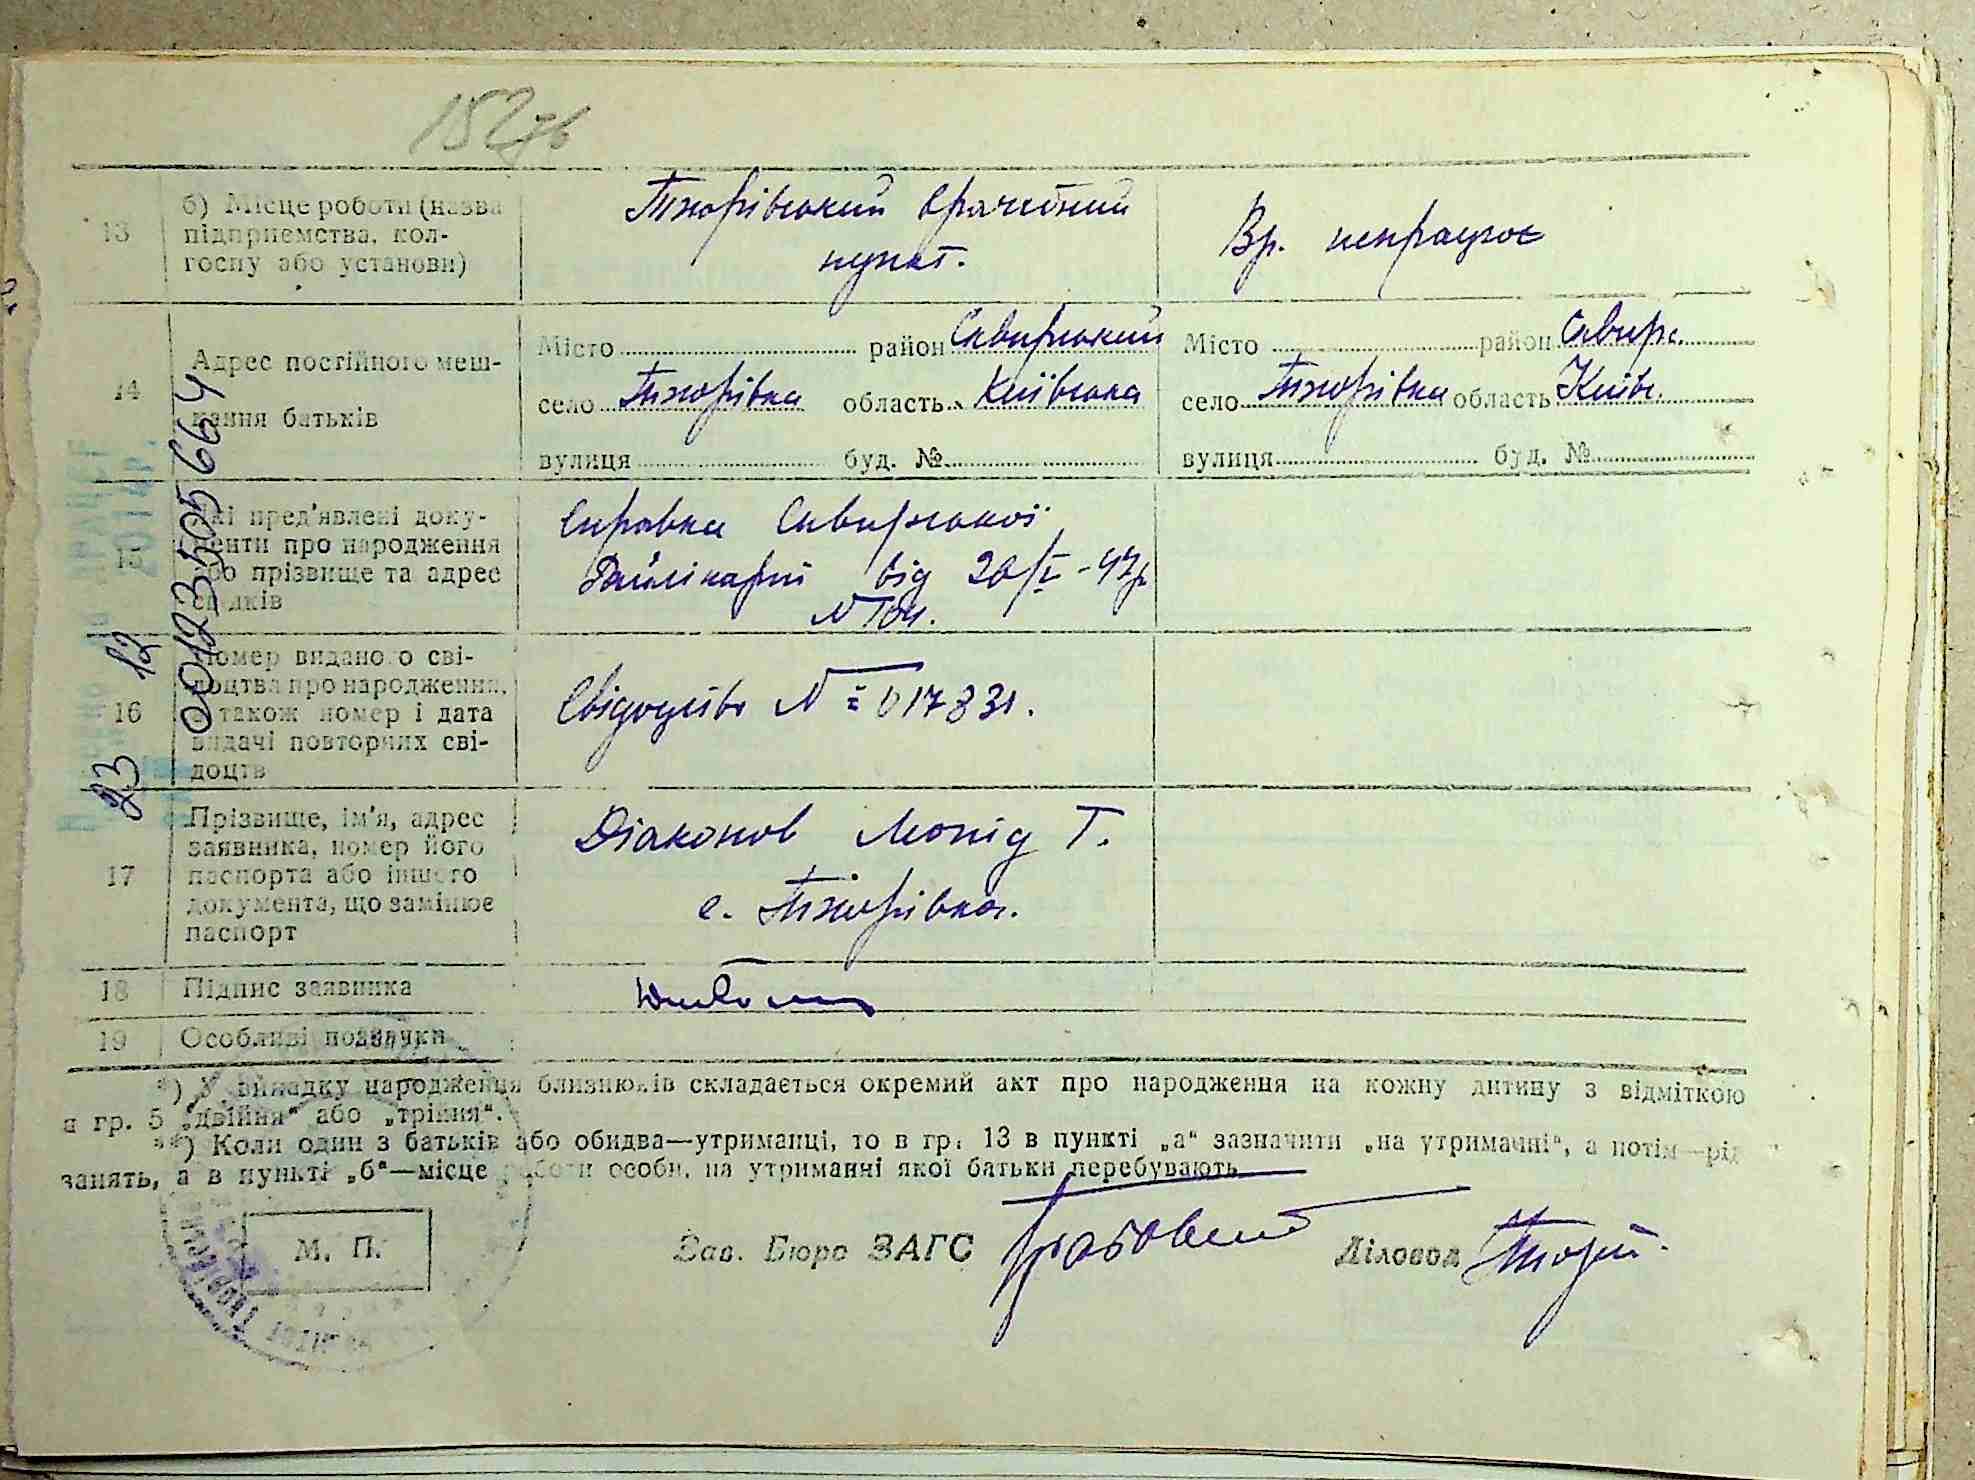 152зв
13
б) Місце роботи (назва
підприємства, кол-
госпу або установи)
Тхорівський врачебний
пункт.
Вр. непрацює
14
Адрес постійного меш-
кання батьків
Місто район Сквирський
село Тхорівка область Київська
вулиця буд. №
Місто район Сквирс.
село Тхорівка область Київс.
вулиця буд. №
15
Які пред'явлені доку-
менти про народження
або прізвище та адрес
батьків
Справка Сквирської
Райлікарні від 20/I-47р
16
Номер виданого сві-
доцтва про народження,
а також номер і дата
видачі повторних сві-
доцтв
Свідоцтво № 017831.
17
Прізвище, ім'я, адрес
заявника, номер його
паспорта або іншого
документа, що замінює
паспорт
Діаконов Леонід Т.
с. Тхорівка.
18
Підпис заявника
19
Особливі позначки
*) У випадку народження близнюків складається окремий акт про народження на кожну дитину з відміткою
в гр. 5 „двійня" або „трійня".
**) Коли один з батьків або обидва—утриманці, то в гр. 13 в пункті „а" зазначити „на утриманні", а потім—рід
занять, а в пункті „б"—місце роботи особи, на утриманні якої батьки перебувають
М. П.
Зав. Бюро ЗАГС
Діловод
00123505664
23 12